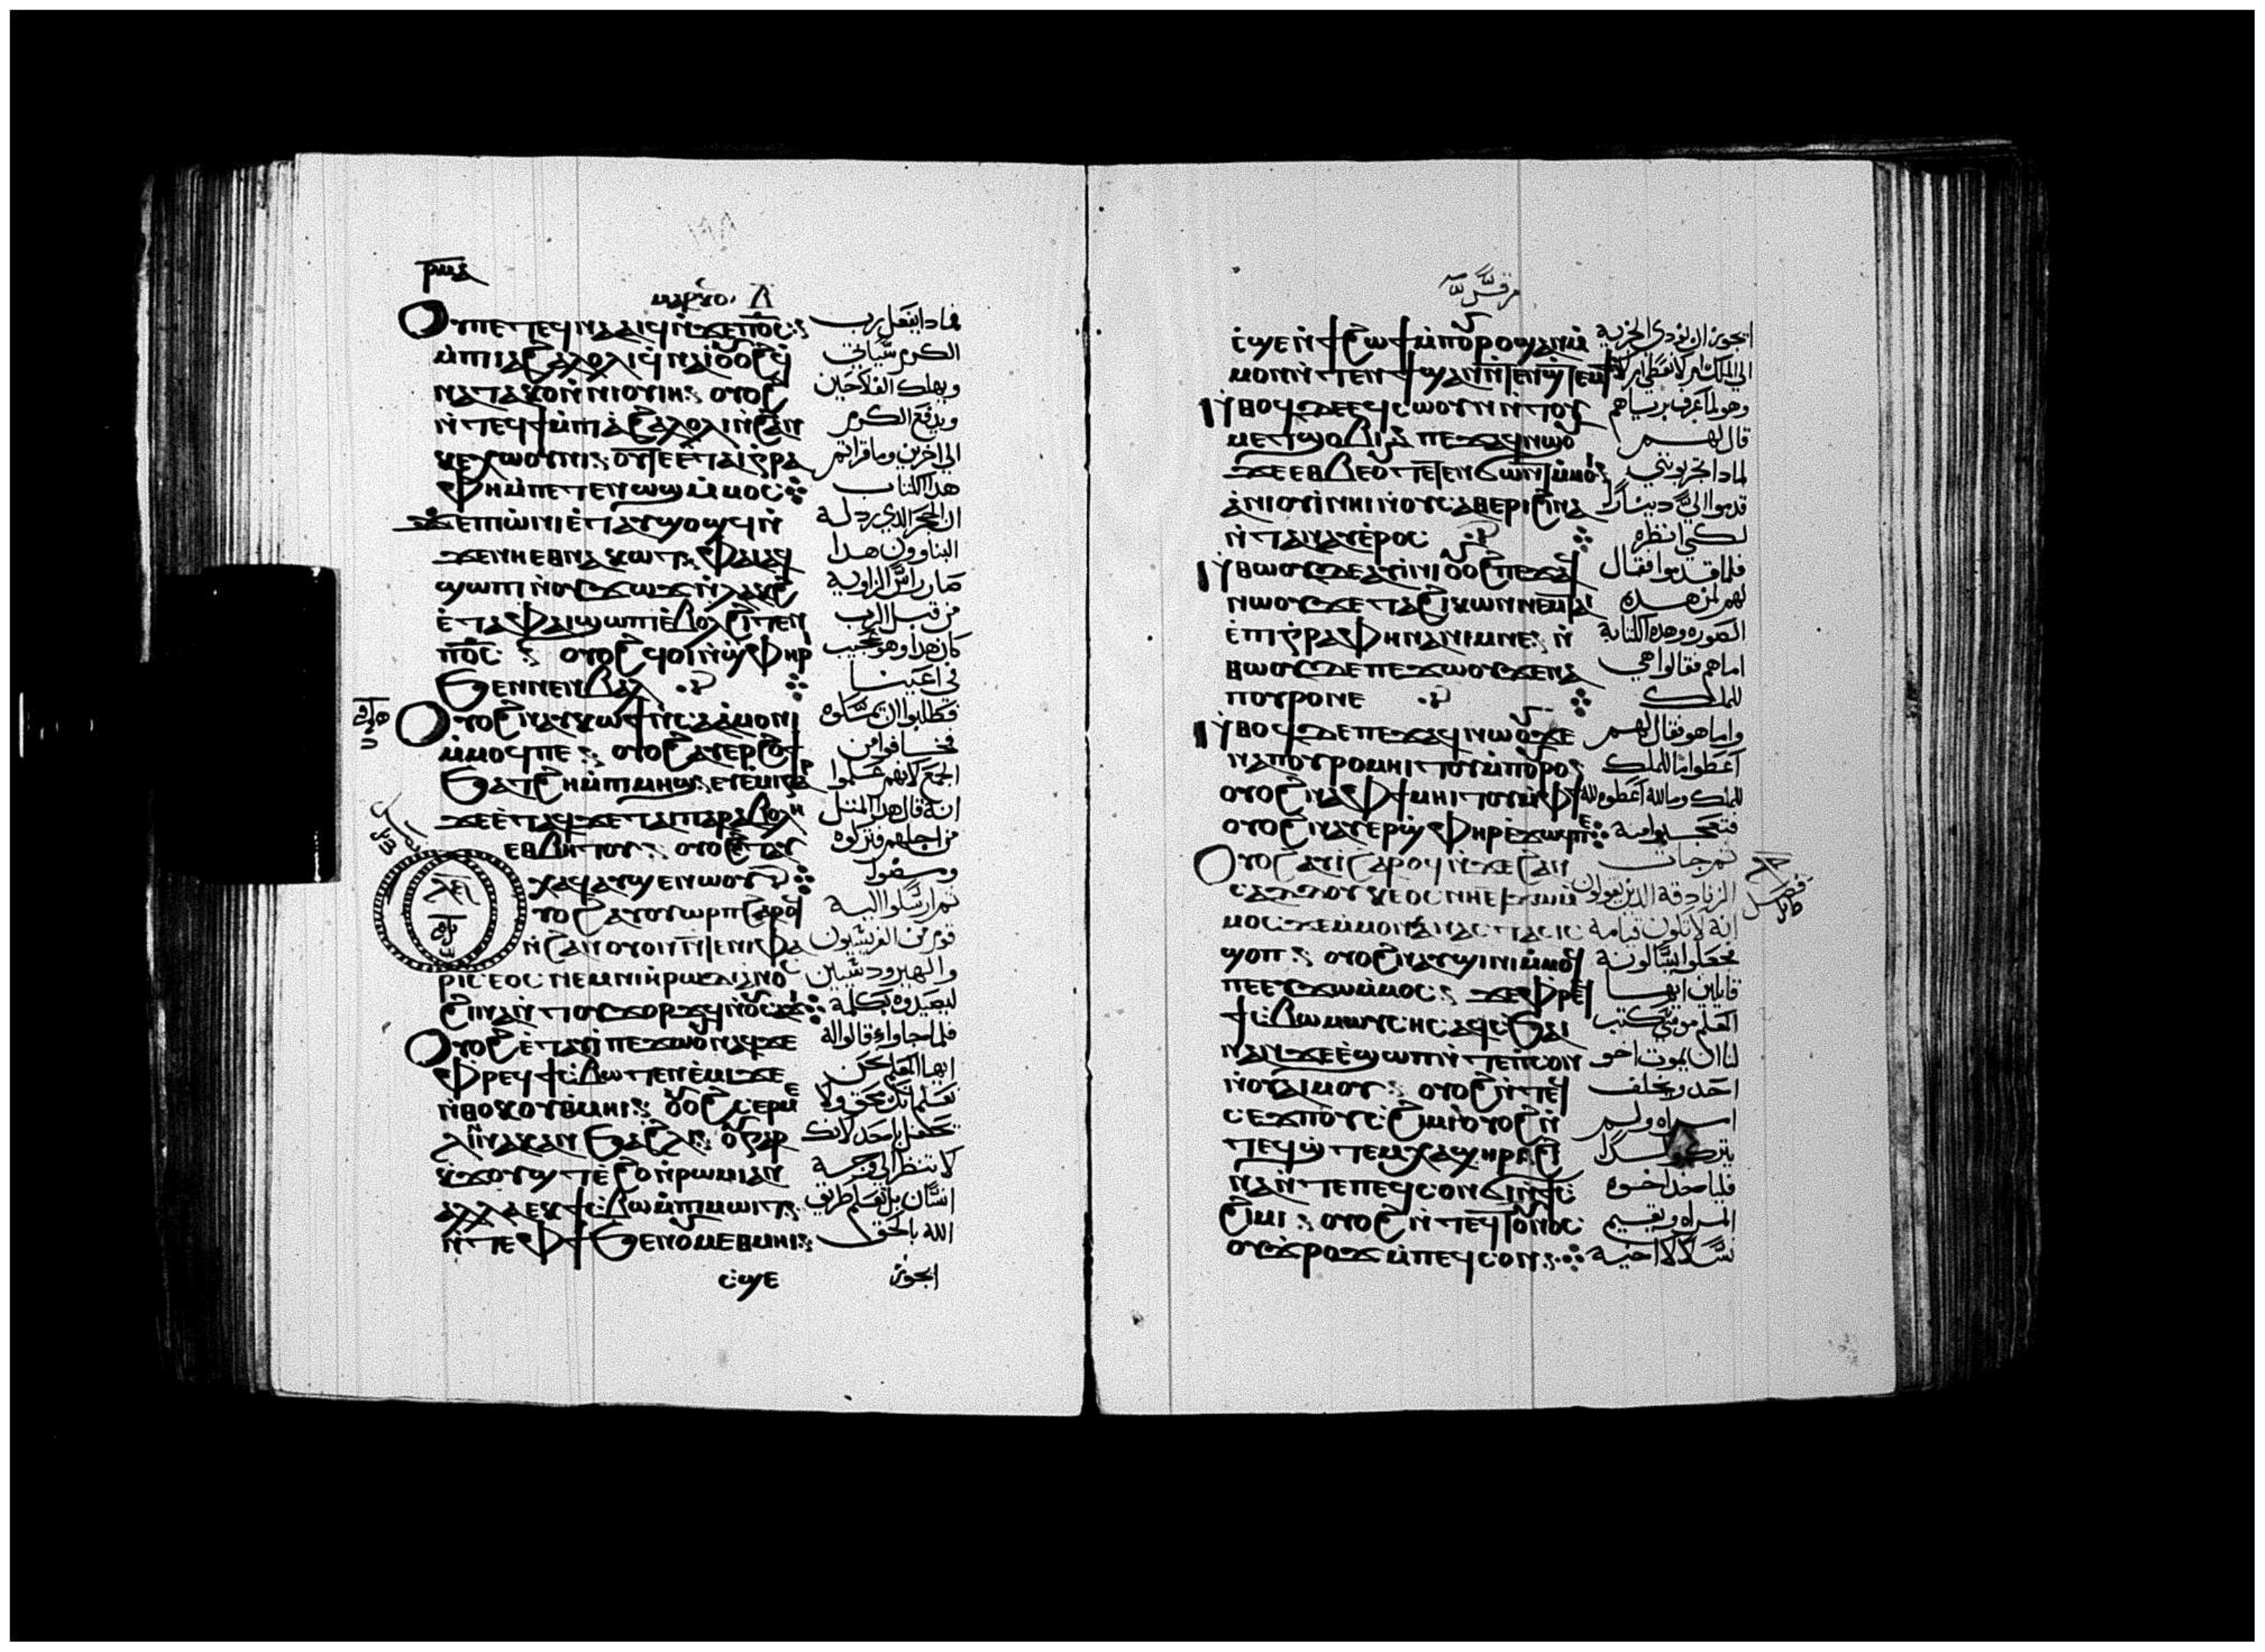 ⲣⲙⲋ
ⲙⲁⲣⲕⲟ
ⲟⲩⲡⲉⲧⲉϥⲛⲁⲁⲓϥ ⲛ̀ϫⲉⲡϭⲥ
ⲙ̀ⲡⲓⲁϩⲁⲗⲟⲗⲓ ϥ̀ⲛⲁⲓ̀ ⲟⲩⲟϩ ϥ̀
ⲛⲁⲧⲁⲕⲟ ⲛ̀ⲛⲓⲟⲩⲓⲏ ⲟⲩⲟϩ
ⲛ̀ⲧⲉϥϯ ⲙ̀ⲡⲓⲁϩⲁⲗⲟⲗⲓ ⲛ̀ϩⲁⲛ
ⲕⲉⲭⲱⲟⲩⲛⲓ ⲟⲩⲧⲉ ⲉⲧⲁⲓⲅⲣⲁ
ⲫⲏ ⲙ̀ⲡⲉⲧⲉⲛⲱϣ ⲙ̀ⲙⲟⲥ
ϫⲉ ⲡⲓⲱ̀ⲛⲓ ⲉ̀ⲧⲁⲩϣⲟϣϥ ⲛ̀
ϫⲉⲛⲏⲉⲑⲛⲁⲕⲱⲧ ⲫⲁⲓ ⲁϥ
ϣⲱⲡⲓ ⲛ̀ⲟⲩϫⲱϫ ⲛ̀ⲗⲁⲕϩ
ⲉ̀ⲧⲁ ⲫⲁⲓ ϣⲱⲡⲓ ⲉ̀ⲃⲟⲗ ϩⲓⲧⲉⲛ
ⲡϭⲥ ⲟⲩⲟϩ ϥⲟⲓ ⲛ̀ϣ̀ⲫⲏⲣ
ϧⲉⲛ ⲛⲉⲛⲃⲁⲗ
ⲟⲩⲟϩ ⲛⲁⲩⲕⲱϯ ⲛ̀ⲥⲁ ⲁ̀ⲙⲟⲛⲓ
ⲙ̀ⲙⲟϥⲡⲉ ⲟⲩⲟϩ ⲁⲩⲉⲣϩⲟϯ
ϧⲁⲧϩⲏ ⲙ̀ⲡⲓⲙⲏϣ ⲉⲧⲉ̀ⲙⲓ ⲅⲁⲣ
ϫⲉ ⲉ̀ⲧⲁϥϫⲉ ⲧⲁⲓⲡⲁⲣⲁⲃⲟⲗⲏ
ⲉⲑⲃⲏⲧⲟⲩ ⲟⲩⲟϩ ⲉⲧⲁⲩ
ⲭⲁϥ ⲁⲩϣⲉⲛⲱⲟⲩ
ⲩⲟϩ ⲁⲩⲟⲩⲱⲣⲡ ϩⲁⲣⲟϥ
ⲛ̀ϩⲁⲛⲟⲩⲟⲛ ⲛ̀ⲧⲉⲛⲓⲫⲁ
ⲣⲓⲥⲉⲟⲥ ⲛⲉⲙ ⲛⲓⲏⲣⲱⲇⲓⲁⲛⲟⲥ
ϩⲓⲛⲁ ⲛ̀ⲧⲟⲩϫⲟⲣϫϥ ⲛ̀ⲟⲩⲥⲁϫⲓ
ⲟⲩⲟϩ ⲉ̀ⲧⲁⲩⲓ̀ ⲡⲉϫⲱⲟⲩ ⲛⲁϥ ϫⲉ
ⲫⲣⲉϥϯⲥ̀ⲃⲱ ⲧⲉⲛⲉ̀ⲙⲓ ϫⲉ
ⲛ̀ⲑⲟⲕ ⲟⲩⲑⲙⲏⲓ ⲟⲩⲟϩ ⲥⲉⲣⲙⲉ
ⲗⲓⲛⲁⲕ ⲁⲛ ϧⲁ ϩⲗⲓ ⲟⲩ ⲅⲁⲣ
ⲕ̀ϫⲟⲩϣⲧ ⲉ̀ϩⲟ ⲛ̀ⲣⲱⲙⲓ ⲁⲛ
ⲁⲗⲗⲁ ⲉⲕϯⲥ̀ⲃⲱ ⲙ̀ⲡⲓⲙⲱⲓⲧ
ⲛ̀ⲧⲉ ⲫϯ ϧⲉⲛ ⲟⲩⲙⲉⲑⲙⲏⲓ
ⲥϣⲉ
فماذا يفعل رب
الكرم سياتي
ويهلك الفلاحين
ويدفع الكرم
الي اخرين وما قراتم
هذا الكتاب
ان الحجر الذي رذله
البناوون هذا
صار راس الزاوية
من قبل الرب
كان هذا وهو عجيب
في اعيننا
فطلبوا ان يمسكوه
فخافوا من
الجمع لانهم علموا
انه قال هذا المثل
من اجلهم فتركوه
ومضوا
ثم ارسلوا اليه
قوم من الفريسيون
والهيروديسيين
ليصيدوه بكلمة
فلما جاوا قالوا له
ايها المعلم نحن
نعلم انك محق ولا
تحفل باحد لانك
لا تنظر الي وجه
انسان بل تعلم طريق
الله بالحق
ايجوز
مرقس
ⲥ̀ϣⲉ ⲛ̀ϯ ϩⲱϯ ⲙ̀ⲡⲟⲩⲣⲟ ϣⲁⲛ ⲙ̀
ⲙⲟⲛ ⲛ̀ⲧⲉⲛϯ ϣⲁⲛ ⲛ̀ⲧⲉⲛϣ̀ⲧⲉⲙϯ
ⲛ̀ⲑⲟϥ ⲇⲉ ⲉϥⲥⲱⲟⲩⲛ ⲛ̀ⲧⲟⲩ
ⲙⲉⲧϣⲟⲃⲓ ⲡⲉϫⲁϥ ⲛⲱⲟⲩ
ϫⲉ ⲉⲑⲃⲉⲟⲩ ⲧⲉⲧⲉⲛϭⲱⲛⲧ ⲙ̀ⲙⲟⲓ
ⲁ̀ⲛⲓⲟⲩⲓ̀ ⲛⲏⲓ ⲛ̀ⲟⲩⲥⲁⲑⲉⲣⲓ ϩⲓⲛⲁ
ⲛ̀ⲧⲁⲛⲁⲩ ⲉ̀ⲣⲟⲥ
ⲛ̀ⲑⲱⲟⲩ ⲇⲉ ⲁⲩⲓ̀ⲛⲓ ⲟⲩⲟϩ ⲡⲉϫⲁϥ
ⲛⲱⲟⲩ ϫⲉ ⲧⲁϩⲓⲕⲱⲛ ⲛⲉⲙ ⲧⲁⲓ
ⲉ̀ⲡⲓⲅⲣⲁⲫⲏ ⲛⲁⲛⲓⲙ ⲛⲉ ⲛ̀
ⲑⲱⲟⲩ ⲇⲉ ⲡⲉϫⲱⲟⲩ ϫⲉ ⲛⲁ
ⲡⲟⲩⲣⲟ ⲛⲉ
ⲛ̀ⲑⲟϥ ⲇⲉ ⲡⲉϫⲁϥ ⲛⲱⲟⲩ ϫⲉ
ⲛⲁⲡⲟⲩⲣⲟ ⲙⲏⲓⲧⲟⲩ ⲙ̀ⲡⲟⲩⲣⲟ
ⲟⲩⲟϩ ⲛⲁ ⲫϯ ⲙⲏⲓⲧⲟⲩ ⲙ̀ⲫϯ
ⲟⲩⲟϩ ⲛⲁⲩⲉⲣϣ̀ⲫⲏⲣⲓ ⲉ̀ϫⲱϥⲡⲉ
ⲟⲩⲟϩ ⲁⲩⲓ̀ ϩⲁⲣⲟϥ ⲛ̀ϫⲉ ϩⲁⲛ
ⲥⲁⲇⲇⲟⲩⲕⲉⲟⲥ ⲛⲏⲉⲧϫⲱ ⲙ̀
ⲙⲟⲥ ϫⲉ ⲙ̀ⲙⲟⲛ ⲁⲛⲁⲥⲧⲁⲥⲓⲥ
ϣⲟⲡ ⲟⲩⲟϩ ⲛⲁⲩϣⲓⲛⲓ ⲙ̀ⲙⲟϥ
ⲡⲉ ⲉⲩϫⲱ ⲙ̀ⲙⲟⲥ ϫⲉ ⲫⲣⲉϥ
ϯⲥ̀ⲃⲱ ⲙⲱⲩⲥⲏⲥ ⲁϥⲥ̀ϧⲁⲓ
ⲛⲁⲛ ϫⲉ ⲉ̀ϣⲱⲡ ⲛ̀ⲧⲉ ⲡⲥⲟⲛ
ⲛ̀ⲟⲩⲁⲓ ⲙⲟⲩ ⲟⲩⲟϩ ⲛ̀ⲧⲉϥ
ⲥⲉϫⲡ ⲟⲩⲥ̀ϩⲓⲙⲓ ⲟⲩⲟϩ ⲛ̀
ⲧⲉϥϣ̀ⲧⲉⲙⲭⲁ ϣⲏⲣⲓ ϩⲓ
ⲛⲁ ⲛ̀ⲧⲉ ⲡⲉϥⲥⲟⲛ ϭⲓ ⲛ̀ϯⲥ̀
ϩⲓⲙⲓ ⲟⲩⲟϩ ⲛ̀ⲧⲉϥⲧⲟⲩⲛⲟⲥ
ⲟⲩϫⲣⲟϫ ⲙ̀ⲡⲉϥⲥⲟⲛ
ايجوز ان نؤدي الجزية
الي الملك ام لا نعطي ام لا
وهو لما عرف برياهم
قال لهم
لماذا تجربونني
قدموا الي دينارا
لكي انظره
فلما قدموا فقال
لهم لمن هذه
الصورة وهذه الكتابة
اما هم فقالوا هي
للملك
واما هو فقال لهم
اعطوا ما للملك
للملك وما لله اعطوه لله
فتعجبوا منه
ثم جات
الزنادقة الذين يقولون
انه لا تكون قيامة
فجعلوا يسالونه
قايلين ايها
المعلم موسي كتب
لنا ان يموت اخو
احد ويخلف
امراه ولم
يترك نسلا
فلياخذ اخوه
المراه ويقيم
نسلا لاخيه